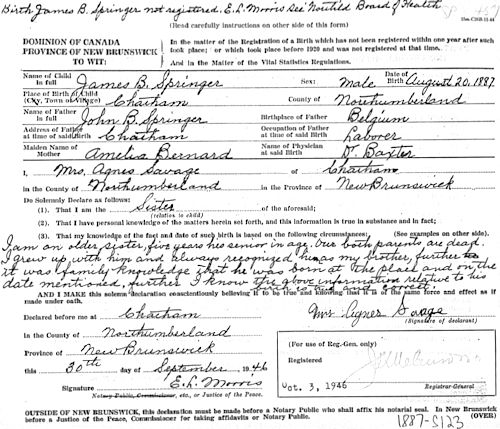 Birth James B. Springer not registered. E.L. Morris Sec Northld Board of Health
(Read carefully instructions on other side of form)
DOMINION OF CANADA
PROVINCE OF NEW BRUNSWICK
TO WIT:
In the matter of the Registration of a Birth which has not been registered within one year after such
took place; or which took place before 1920 and was not registered at that time.
And in the Matter of the Vital Statistics Regulations.
Name of Child in full James B. Springer Sex: Male Date of Birth August 20, 1887
Place of Birth of Child (City, Town or Village) Chatham County of Northumberland
Name of Father in full John B. Springer Birthplace of Father Belgium
Address of Father at time of said Birth Chatham Occupation of Father at time of said Birth Laborer
Maiden Name of Mother Amelia Bernard Name of Physician at said Birth Dr. Baxter
I, Mrs. Agnes Savage of Chatham
in the County of Northumberland in the Province of New Brunswick
Do Solemnly Declare as follows:
(1). That I am the Sister of the aforesaid;
(relation to child)
(2). That I have personal knowledge of the matters herein set forth, and this information is true in substance and in fact;
(3). That my knowledge of the fact and date of such birth is based on the following circumstances: (See examples on other side).
I am an older sister, five years his senior in age. Our both parents are dead.
I grew up with him and always recognized him as my brother, further
it was family knowledge that he was born at the place and on the
date mentioned, further I know the above information relative to his
birth is true and correct.
AND I MAKE this solemn declaration conscientiously believing it to be true and knowing that it is of the same force and effect as if
made under oath.
Declared before me at Chatham
Mrs Agnes Savage
(Signature of declarant)
County of Northumberland
Province of New Brunswick
this 30th day of September, 1946
Signature E. L. Morris
Notary Public, Commissioner, etc., or Justice of the Peace.
(For use of Reg.-Gen. only)
Registered
Oct. 3, 1946
Registrar-General
OUTSIDE OF NEW BRUNSWICK, this declaration must be made before a Notary Public who shall affix his notarial seal. In New Brunswick
before a Justice of the Peace, Commissioner for taking affidavits or Notary Public.
(OVER)
1887-S123